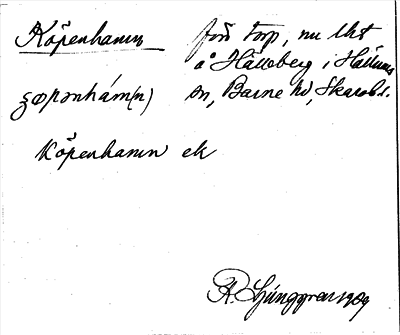 Köpenhamn förr torp, nu lht
å Hälleberg i Hällums
ʂøpənhám(n) sn, Barne hd, Skarab. l.
Köpenhamn ek
R. Ljunggren 1909